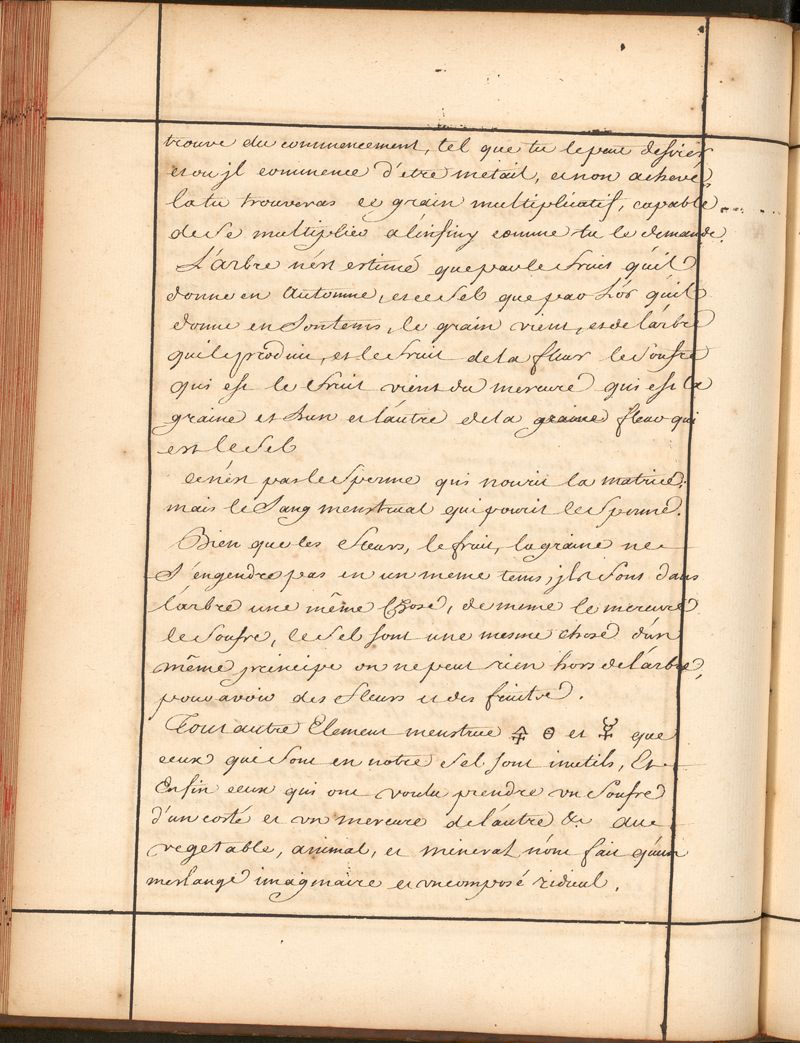 trouve du commencement, tel que tu le peut desirer
et ou jl commence d'etre metail, et non achevé,
la tu trouveras ce grain multiplicatif, capable
de se multiplier a l'infiny comme tu le demande.
L'arbre n'est estimé que par le fruit qu'il
donne en Automne, et ce sel que par L'or qu'il
donne en Sontems, le grain vient, et de l'arbre
qui le produit, et le fruit de la fleur le soufre
qui est le fruit vient du mercure qui est la
graine et l'un et l'autre de la graine fleur qui
est le sel
ce n'est pas le sperme qui nourit la matrice,
mais le sang menstrual qui pourit le sperme.
Bien que les fleurs, le fruit, la graine ne
s'engendre pas en un meme tems, jls sont dans
l'arbre une même chose, de meme le mercure
le soufre, le sel sont une mesme chose d'un
même principe on ne peut rien hors de l'arbre,
pour avoir des fleurs et des fruits.
Tout autre Element menstrue 🜍 🜔 et ☿ que
ceux qui sont en notre sel sont inutils, Et
Enfin ceux qui ont voulu prendre un soufre
d'un corté et vn mercure de l'autre &c due
vegetable, animal, et mineral n'ont fait qu'un
meslange imaginaire et vn composé ridicul.